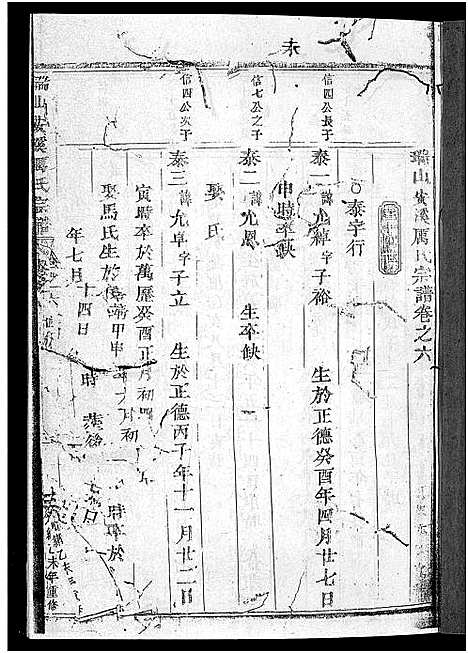 瑞山安溪厲氏宗譜卷之六
○泰字行
信四公長子
泰一 諱允綽字子裕 生於正德癸酉年四月廿七日
申時卒缺
信七公之子
泰二 諱允恩 生卒缺
娶氏
信四公次子
泰三 諱允卓字子立 生於正德丙子年十一月廿二日
寅時卒於萬歷癸酉正月初
娶馬氏生於 甲申 月初 時卒於
年七月十四日 時
瑞山安溪厲氏宗譜
乙未年重修